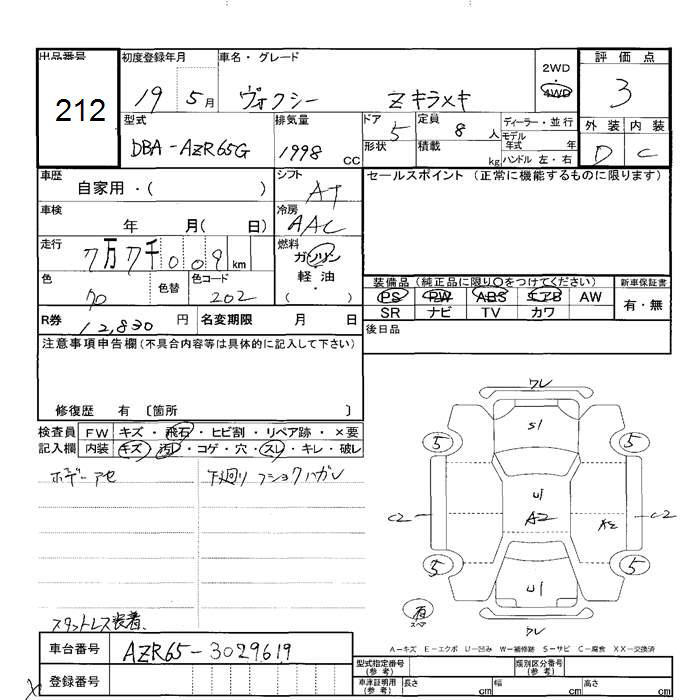 出品番号 初度登録年月 車名・グレード 2WD 4WD 評価点
212 19 5月 ヴォクシー Z キラメキ 3
型式 排気量 ドア 5 定員 8 人 ディーラー・並行 外装 内装
DBA-AZR65G 1998 CC 形状 積載 kg モデル年式 年 D C
ハンドル 左・右
車歴 シフト セールスポイント (正常に機能するものに限ります)
自家用・( ) AT
車検 年 月( 日) 冷房 AAC
走行 7万7千009km 燃料 ガソリン
軽・油
( )
色 色替 色コード 装備品 (純正品に限り○をつけてください) 新車保証書
70 202 PS PW ABS エアB AW 有・無
R券 12,830 円 名変期限 月 日 SR ナビ TV カワ
注意事項申告欄(不具合内容等は具体的に記入して下さい) 後日品
修復歴 有 〔箇所 〕
検査員 FW キズ・飛石・ヒビ割・リペア跡・×要
記入欄 内装 キズ・汚レ・コゲ・穴・スレ・キレ・破レ
ボデーアセ 下廻り フショクハガレ
ワレ
S1
5 5
U1
C2 A2 A2 C2
5 5
U1
有 スペア
ワレ
スタットレス装着
A-キズ E-エクボ U-凹み W-補修跡 S-サビ C-腐食 XX-交換済
車台番号 AZR65-3029619
型式指定番号(参考) 類別区分番号(参考)
登録番号 車庫証明用(参考) 長さ cm 幅 cm 高さ cm